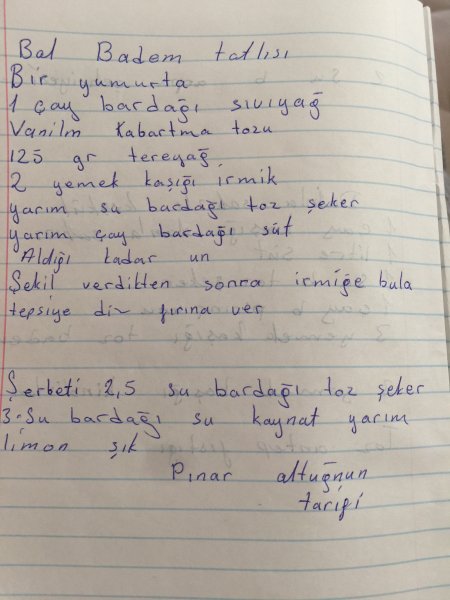 Bal Badem tatlısı
Bir yumurta
1 çay bardağı sıvıyağ
Vanilm kabartma tozu
125 gr tereyağ
2 yemek kaşığı irmik
yarım su bardağı toz şeker
yarım çay bardağı süt
Aldığı kadar un
Şekil verdikten sonra irmiğe bula
tepsiye diz fırına ver
Şerbeti 2,5 su bardağı toz şeker
3-Su bardağı su kaynat yarım
limon şık
Pınar altuğnun
tarifi